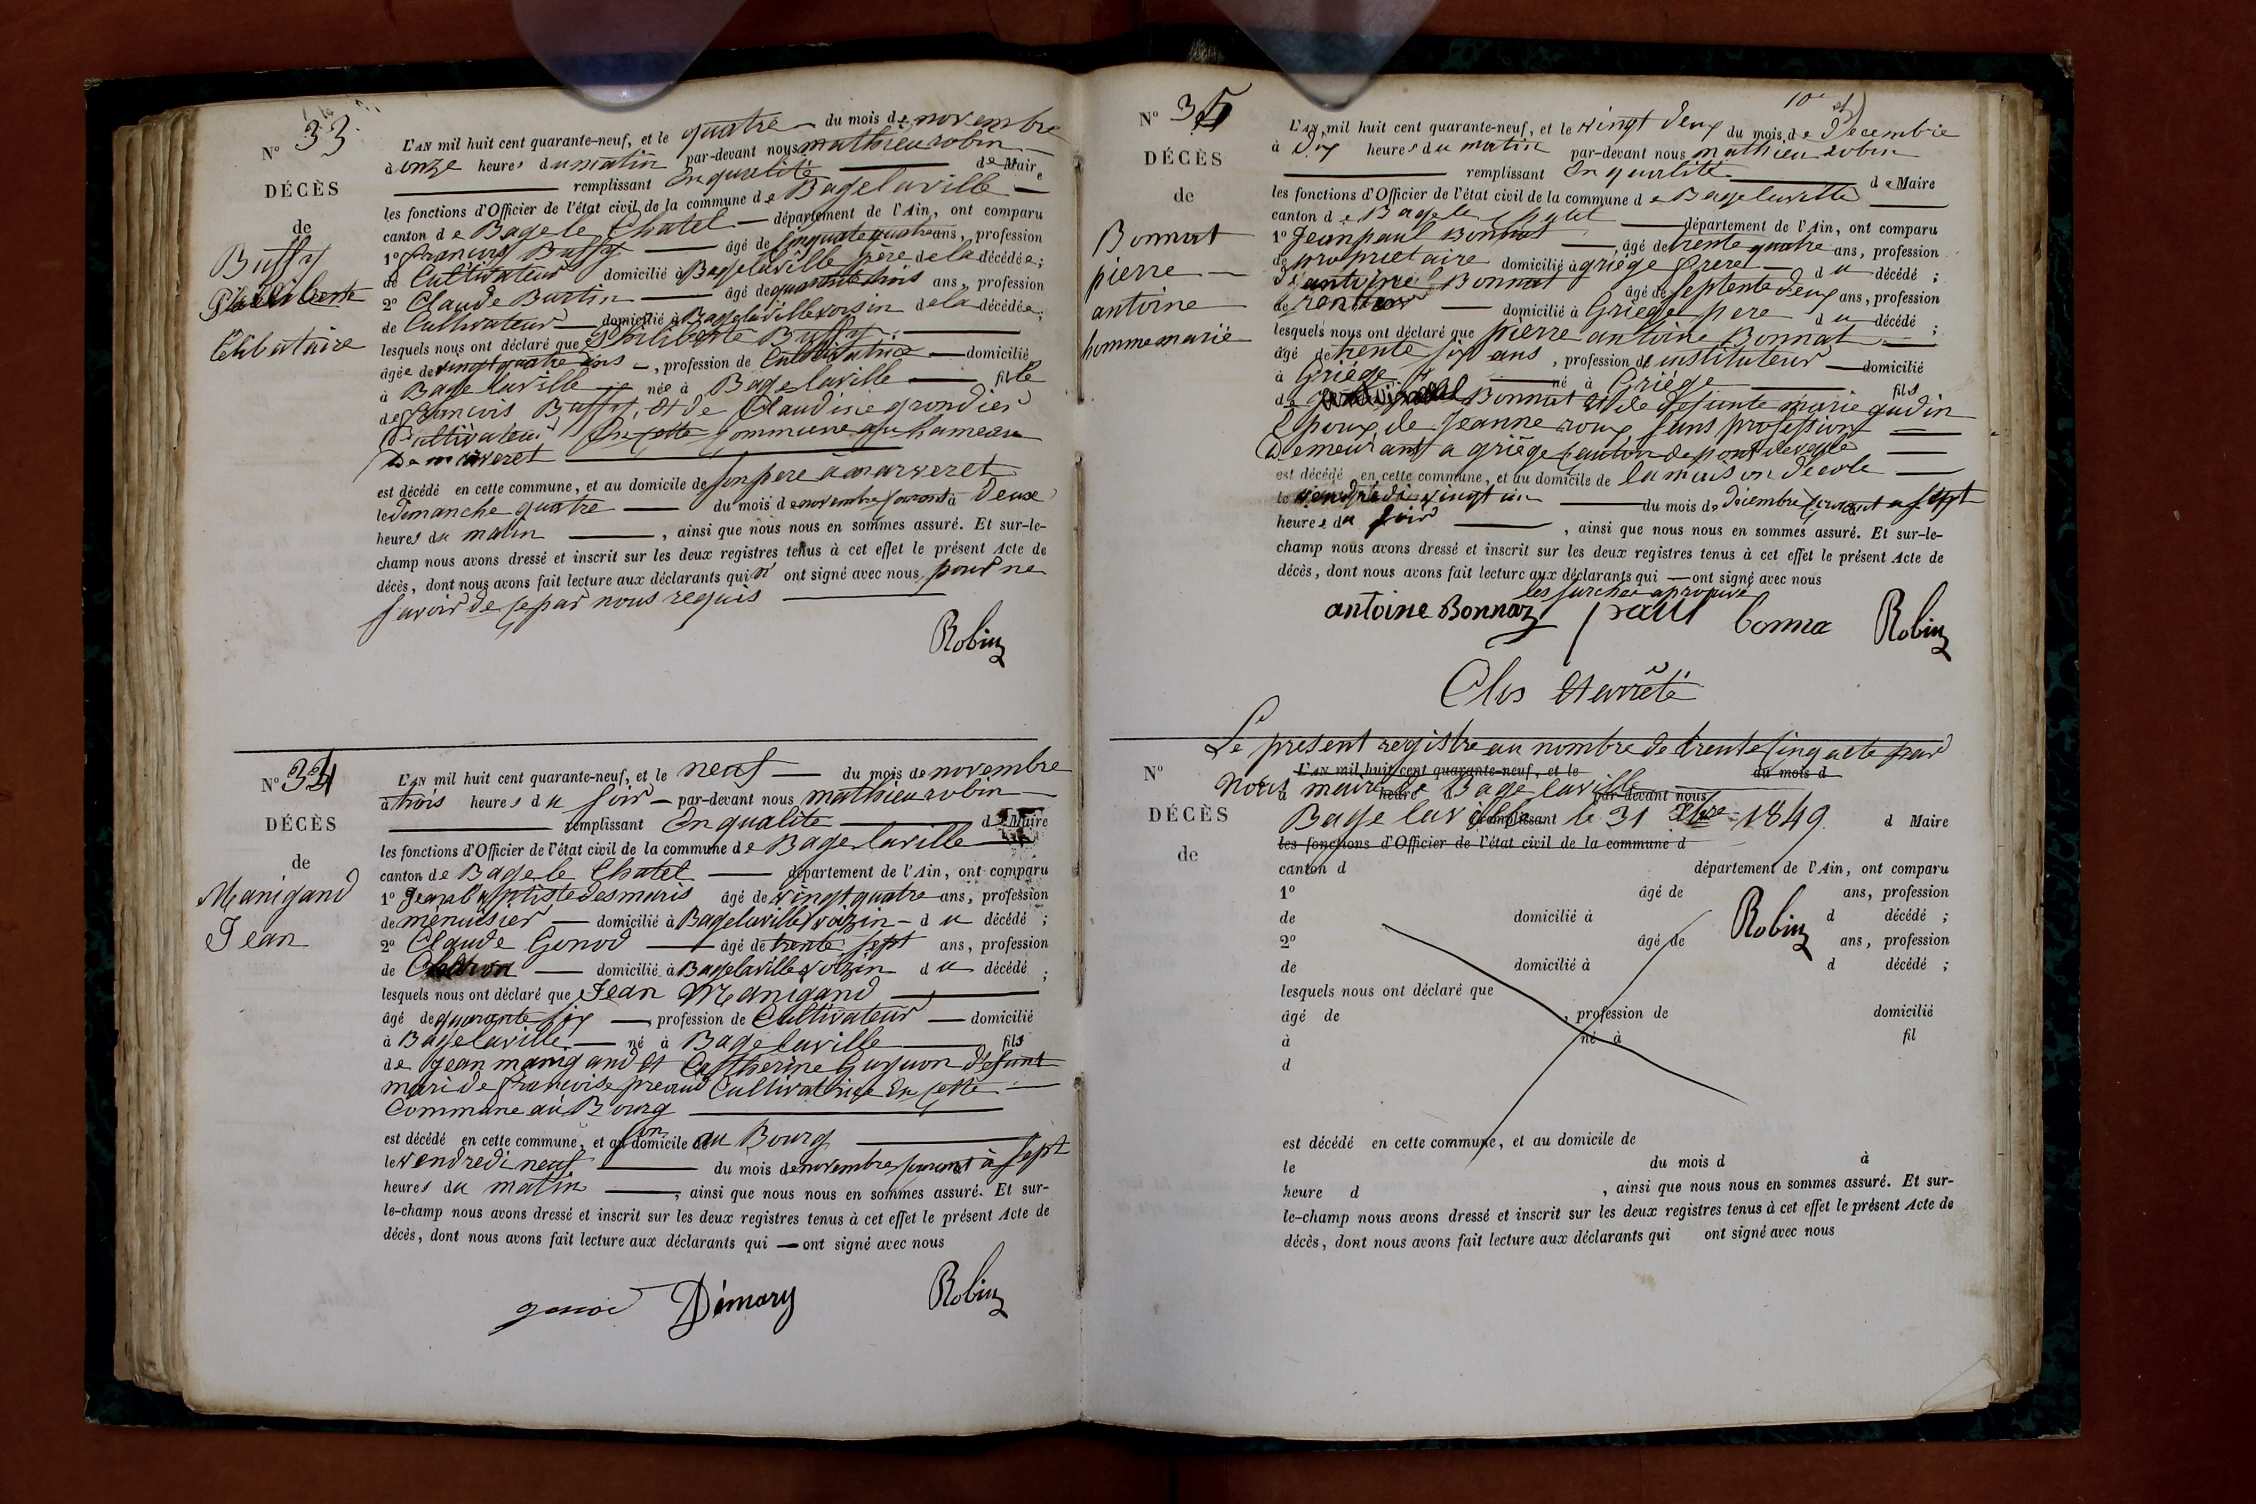 N° 33
DÉCÈS
de
Buffy
Philiberte
Celibataire
L'AN mil huit cent quarante-neuf, et le quatre du mois de novembre
à onze heures du matin par-devant nous mathieu robin
remplissant En qualité de Maire
les fonctions d'Officier de l'état civil de la commune de Bagelaville
canton de Bage le Chatel département de l'Ain, ont comparu
1° francois Buffy âgé de Cinquate quatre ans, profession
de Cultivateur domicilié à Bagelaville père de la décédée;
2° Claude Burtin âgé de quarante trois ans, profession
de Cultivateur domicilié à Bagelaville voisin de la décédée;
lesquels nous ont déclaré que Philiberte Buffy
âgée de vingt quatre ans, profession de Cultivatrice domicilié
à Bage laville née à Bage laville fille
de francois Buffy, et de Claudine grondier
Cultivateur En cette Commune au hameau
De marveret
est décédé en cette commune, et au domicile de son pere à marveret
le dimanche quatre du mois de novembre courant à deux
heures du matin, ainsi que nous nous en sommes assuré. Et sur-le-
champ nous avons dressé et inscrit sur les deux registres tenus à cet effet le présent Acte de
décès, dont nous avons fait lecture aux déclarants qui n' ont signé avec nous pour ne
savoir de ce par nous requis
Robin
N° 34
DÉCÈS
de
Manigand
Jean
L'AN mil huit cent quarante-neuf, et le neuf du mois de novembre
à trois heures du soir par-devant nous mathieu robin
remplissant En qualité de Maire
les fonctions d'Officier de l'état civil de la commune de Bage laville
canton de Bage le Chatel département de l'Ain, ont comparu
1° Jean baptiste desmaris âgé de vingt quatre ans, profession
de menuisier domicilié à Bagelaville voizin du décédé;
2° Claude Gonod âgé de trente sept ans, profession
de domicilié à Bagelaville voizin du décédé;
lesquels nous ont déclaré que Jean Manigand
âgé de quarante six, profession de Cultivateur domicilié
à Bagelaville né à Bage laville fils
de Jean manigand et Catherine Guyuon defunt
mari de francoise preaud Cultivatrice En cette
Commune au Bourg
est décédé en cette commune, et au domicile de au Bourg
le vendredi neuf du mois de novembre courant à sept
heures du matin, ainsi que nous nous en sommes assuré. Et sur-
le-champ nous avons dressé et inscrit sur les deux registres tenus à cet effet le présent Acte de
décès, dont nous avons fait lecture aux déclarants qui ont signé avec nous
gonod Démary Robin
N° 35
DÉCÈS
de
Bonnat
pierre
antoine
homme marié
L'AN mil huit cent quarante-neuf, et le vingt deux du mois de Decembre
à Dix heures du matin par-devant nous mathieu robin
remplissant En qualité de Maire
les fonctions d'Officier de l'état civil de la commune de Bagelaville
canton de Bage le Chatel département de l'Ain, ont comparu
1° Jean paul Bonnat âgé de trente quatre ans, profession
de proprietaire domicilié à griége frere du décédé;
2° antoine Bonnat âgé de septente deux ans, profession
de rentier domicilié à Griege pere du décédé;
lesquels nous ont déclaré que pierre antoine Bonnat
âgé de trente six ans, profession de instituteur domicilié
à Griége né à Griége fils
de Bonnat et de defunte marie gudin
Epoux de Jeanne roux sans profession
Demeurant a griége Canton de pont de vesle
est décédé en cette commune, et au domicile de la maison d'ecole
le vendredi vingt un du mois de decembre courant a sept
heures du soir, ainsi que nous nous en sommes assuré. Et sur-le-
champ nous avons dressé et inscrit sur les deux registres tenus à cet effet le présent Acte de
décès, dont nous avons fait lecture aux déclarants qui ont signé avec nous
les surcher aprouvé
antoine Bonnaz paul bonna Robin
Clos et arrêté
Le present registre au nombre de trente cinq acte par
N° L'AN mil huit cent quarante-neuf, et le du mois d
Nous maire de Bage laville
à heure d par-devant nous
DÉCÈS
Bage laville le 31 Xbre 1849
remplissant d Maire
de
les fonctions d'Officier de l'état civil de la commune d
canton d département de l'Ain, ont comparu
1° âgé de ans, profession
de domicilié à d décédé;
Robin
2° âgé de ans, profession
de domicilié à d décédé;
lesquels nous ont déclaré que
âgé de, profession de domicilié
à né à fil
d
est décédé en cette commune, et au domicile de
le du mois d à
heure d, ainsi que nous nous en sommes assuré. Et sur-
le-champ nous avons dressé et inscrit sur les deux registres tenus à cet effet le présent Acte de
décès, dont nous avons fait lecture aux déclarants qui ont signé avec nous